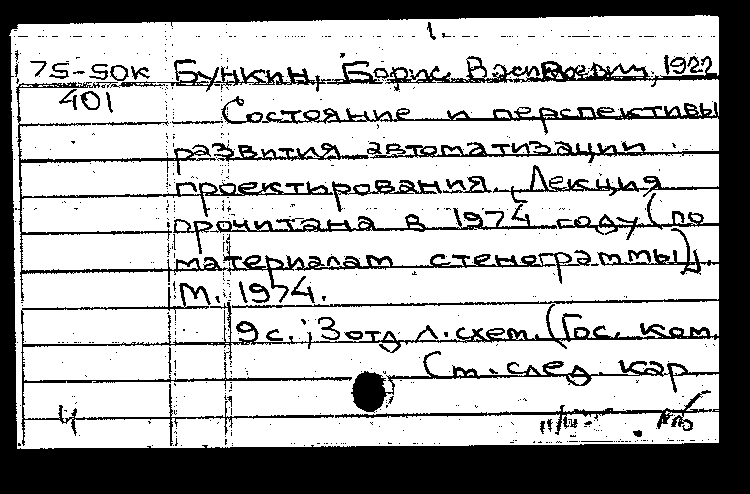 1.
75-50к Бункин, Борис Васильевич, 1922
401 Состояние и перспективы
развития автоматизации
проектирования. Лекция
прочитана в 1974 году (по
материалам стенограммы).
М. 1974.
9 с.; 3 отд. л. схем. (Гос. ком.
(См. след. кар